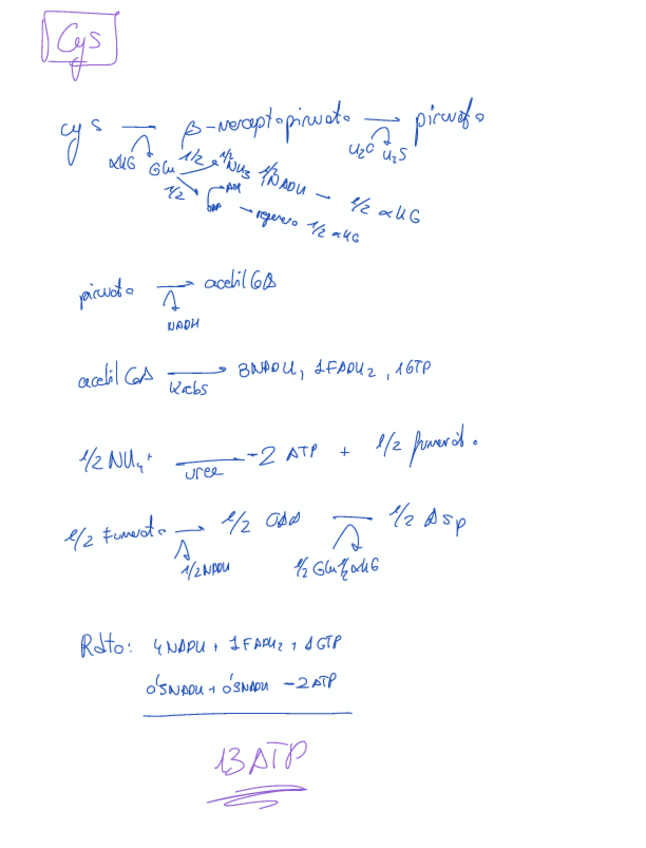 Cys
Cys → β-mercaptopiruvato → piruvato
αKG Glu 1/2 1/2 NH3 1/2 NADH - 1/2 αKG H2O H2S
1/2 OAA Asp - regenero 1/2 αKG
piruvato → acetil CoA
NADH
acetil CoA → 3NADH, 1FADH2, 1GTP
Krebs
1/2 NH4+ → -2 ATP + 1/2 fumarato
urea
1/2 Fumarato → 1/2 OAA → 1/2 Asp
1/2 NADH 1/2 Glu 1/2 αKG
Rdto: 4NADH + 1FADH2 + 1GTP
0'5NADH + 0'5NADH - 2ATP
13 ATP